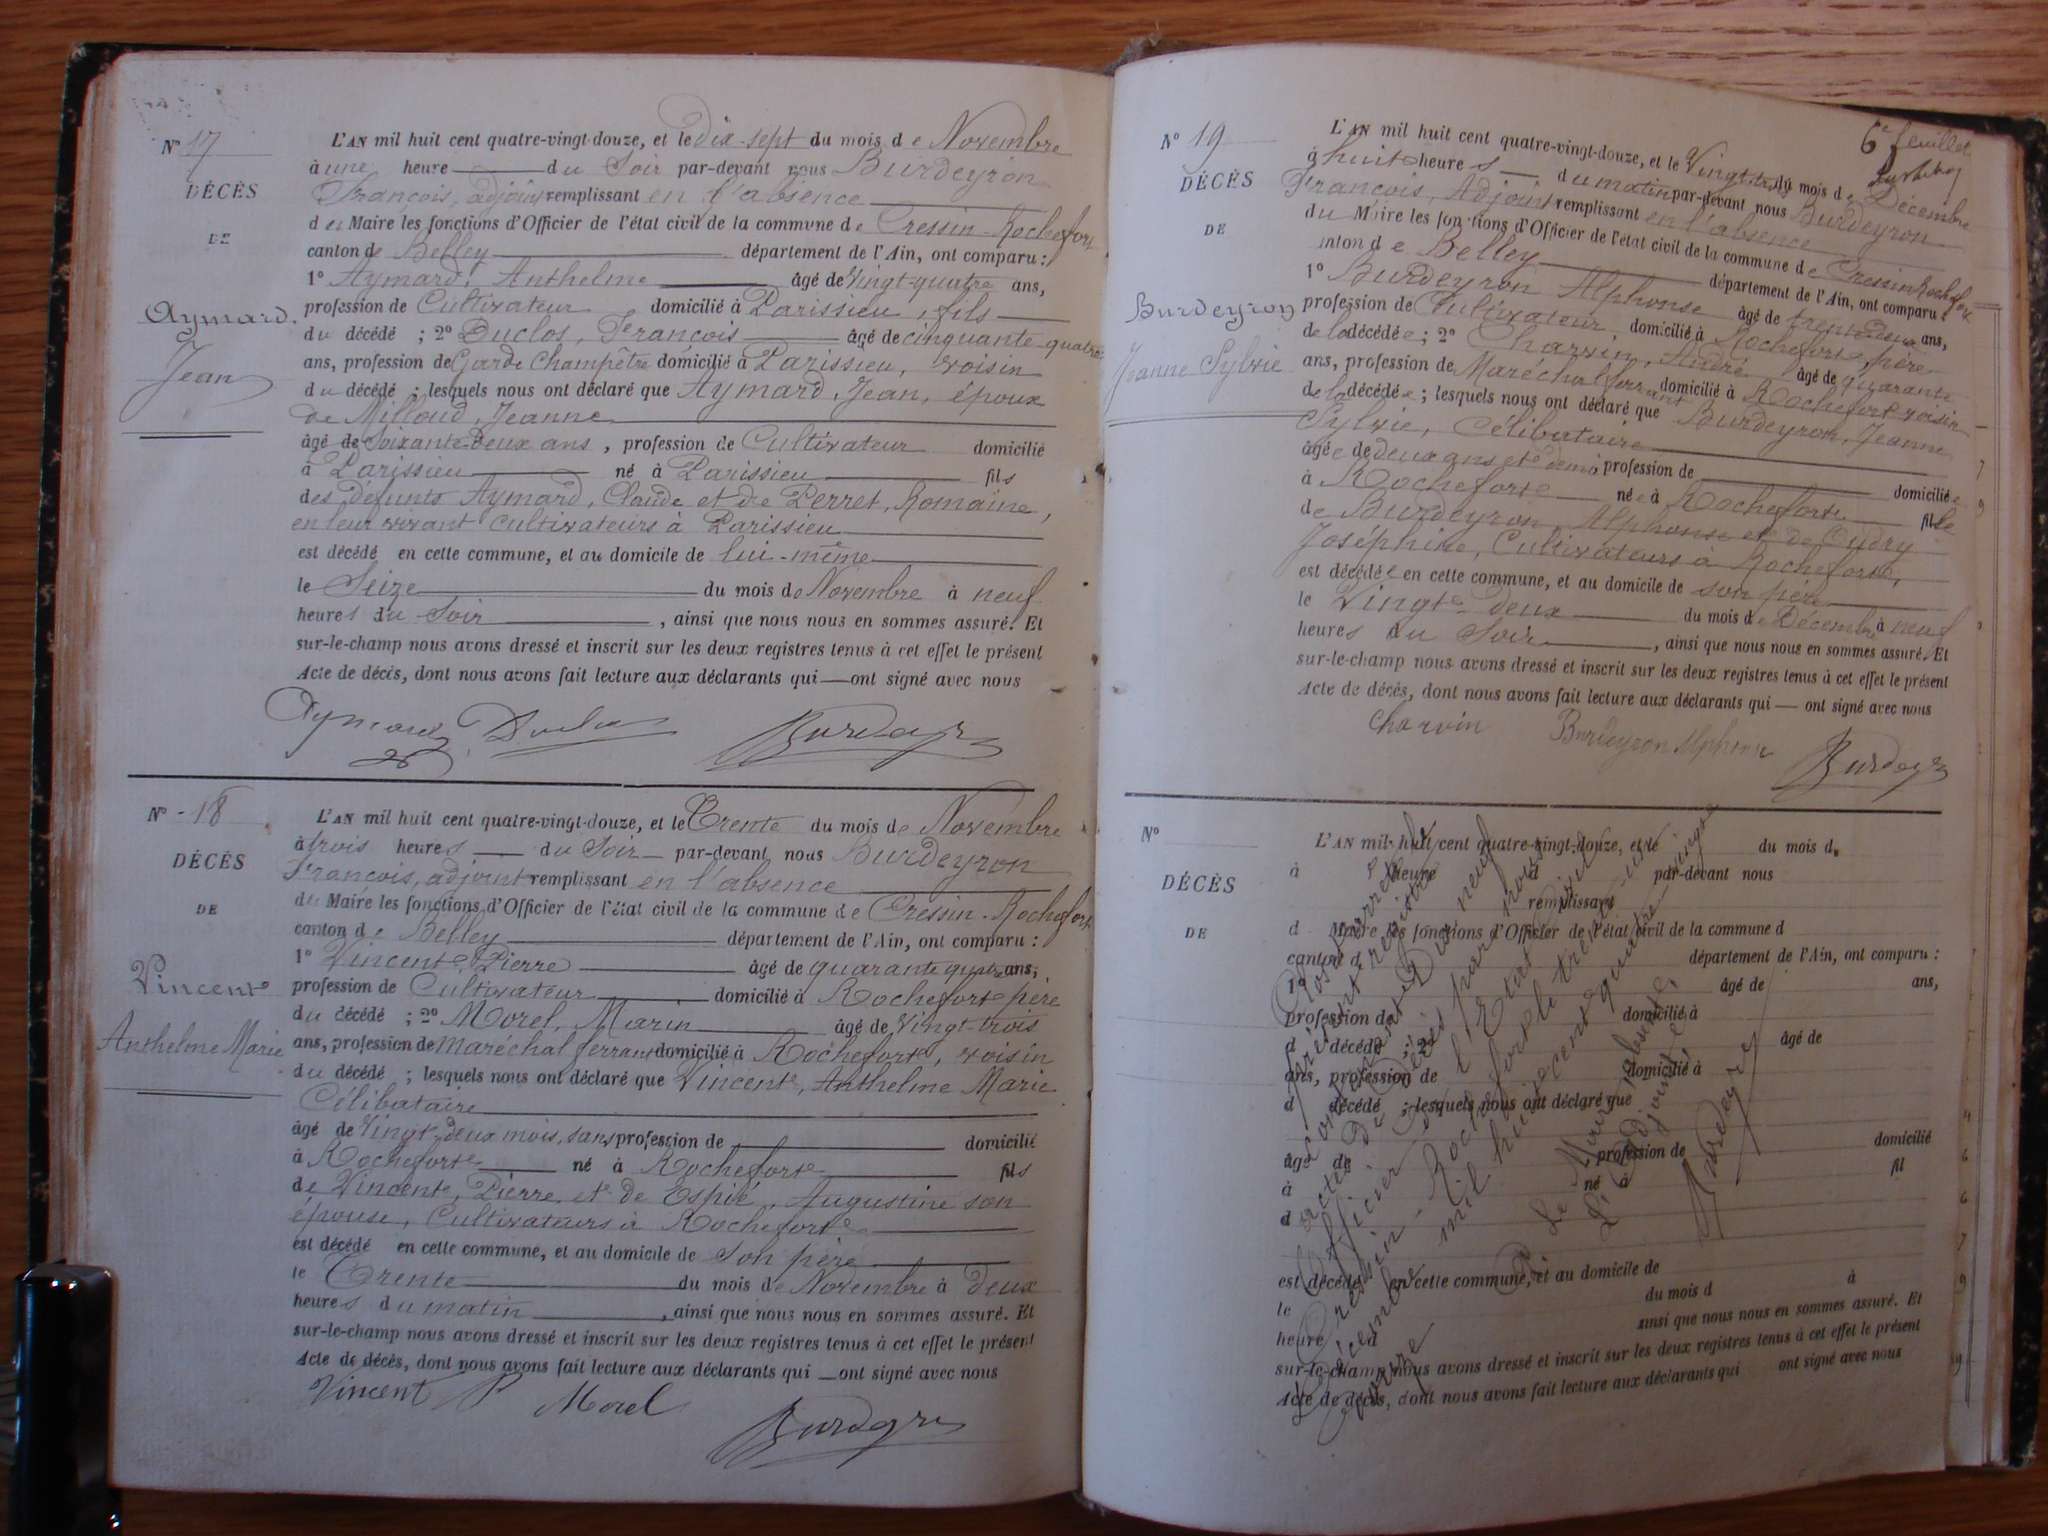 N° 17
DÉCÈS
DE
Aymard.
Jean
L'AN mil huit cent quatre-vingt-douze, et le Dix-sept du mois de Novembre
à une heure du Soir par-devant nous Burdeyron
François, adjoint remplissant en l'absence
du Maire les fonctions d'Officier de l'état civil de la commune de Cressin-Rochefort
canton de Belley département de l'Ain, ont comparu :
1° Aymard, Anthelme âgé de Vingt-quatre ans,
profession de Cultivateur domicilié à Parissieu, fils
du décédé ; 2° Duclos, François âgé de cinquante-quatre
ans, profession de Garde Champêtre domicilié à Parissieu, voisin
du décédé ; lesquels nous ont déclaré que Aymard, Jean, époux
de Milloud, Jeanne
âgé de Soixante-deux ans, profession de Cultivateur domicilié
à Parissieu né à Parissieu fils
des défunts Aymard, Claude et de Perret, Romaine,
en leur vivant Cultivateurs à Parissieu
est décédé en cette commune, et au domicile de lui-même
le Seize du mois de Novembre à neuf
heures du Soir, ainsi que nous nous en sommes assuré. Et
sur-le-champ nous avons dressé et inscrit sur les deux registres tenus à cet effet le présent
Acte de décès, dont nous avons fait lecture aux déclarants qui — ont signé avec nous
Aymard Duclos Burdeyron
N° 18
DÉCÈS
DE
Vincent
Anthelme Marie
L'AN mil huit cent quatre-vingt-douze, et le Trente du mois de Novembre
à trois heures du Soir par-devant nous Burdeyron
François, adjoint remplissant en l'absence
du Maire les fonctions d'Officier de l'état civil de la commune de Cressin-Rochefort
canton de Belley département de l'Ain, ont comparu :
1° Vincent, Pierre âgé de quarante quatre ans,
profession de Cultivateur domicilié à Rochefort, père
du décédé ; 2° Morel, Marin âgé de Vingt-trois
ans, profession de maréchal ferrant domicilié à Rochefort, voisin
du décédé ; lesquels nous ont déclaré que Vincent, Anthelme Marie
Célibataire
âgé de Vingt-deux mois, sans profession de domicilié
à Rochefort né à Rochefort fils
de Vincent, Pierre et de Espié, Augustine son
épouse, Cultivateurs à Rochefort
est décédé en cette commune, et au domicile de Son père
le Trente du mois de Novembre à deux
heures du matin, ainsi que nous nous en sommes assuré. Et
sur-le-champ nous avons dressé et inscrit sur les deux registres tenus à cet effet le présent
Acte de décès, dont nous avons fait lecture aux déclarants qui — ont signé avec nous
Vincent P Morel Burdeyron
6e feuillet
N° 19
DÉCÈS
DE
Burdeyron
Jeanne Sylvie
L'AN mil huit cent quatre-vingt-douze, et le Vingt-trois du mois de Décembre
à huit heures du matin par-devant nous Burdeyron
François, Adjoint remplissant en l'absence
du Maire les fonctions d'Officier de l'état civil de la commune de Cressin Rochefort
canton de Belley département de l'Ain, ont comparu :
1° Burdeyron Alphonse âgé de trente-deux ans,
profession de Cultivateur domicilié à Rochefort, père
de la décédée ; 2° Charvin, André âgé de quarante
ans, profession de Maréchal ferrant domicilié à Rochefort voisin
de la décédée ; lesquels nous ont déclaré que Burdeyron, Jeanne
Sylvie, Célibataire
âgée de deux ans et demi profession de domiciliée
à Rochefort née à Rochefort fille
de Burdeyron, Alphonse et de Cudry
Joséphine, Cultivateurs à Rochefort,
est décédée en cette commune, et au domicile de son père
le Vingt-deux du mois de Décembre à neuf
heures du Soir, ainsi que nous nous en sommes assuré. Et
sur-le-champ nous avons dressé et inscrit sur les deux registres tenus à cet effet le présent
Acte de décès, dont nous avons fait lecture aux déclarants qui — ont signé avec nous
Charvin Burdeyron Alphonse Burdeyron
N°
DÉCÈS
DE
L'AN mil huit cent quatre-vingt-douze, et le du mois d
à heure d par-devant nous
remplissant
d Maire les fonctions d'Officier de l'état civil de la commune d
canton d département de l'Ain, ont comparu :
1° âgé de ans,
profession de domicilié à
d décédé ; 2° âgé de
ans, profession de domicilié à
d décédé ; lesquels nous ont déclaré que
âgé de profession de domicilié
à né à fil
d
est décédé en cette commune, et au domicile de
le du mois d à
heure d ainsi que nous nous en sommes assuré. Et
sur-le-champ nous avons dressé et inscrit sur les deux registres tenus à cet effet le présent
Acte de décès, dont nous avons fait lecture aux déclarants qui ont signé avec nous
Clos et arrêté le
présent registre
contenant Dix neuf
actes de Décès par nous
Officier de l'Etat Civil de
Cressin-Rochefort le trente-un
Décembre mil huit cent quatre-vingt
douze
P. Le Maire absent,
L'Adjoint
Burdeyron